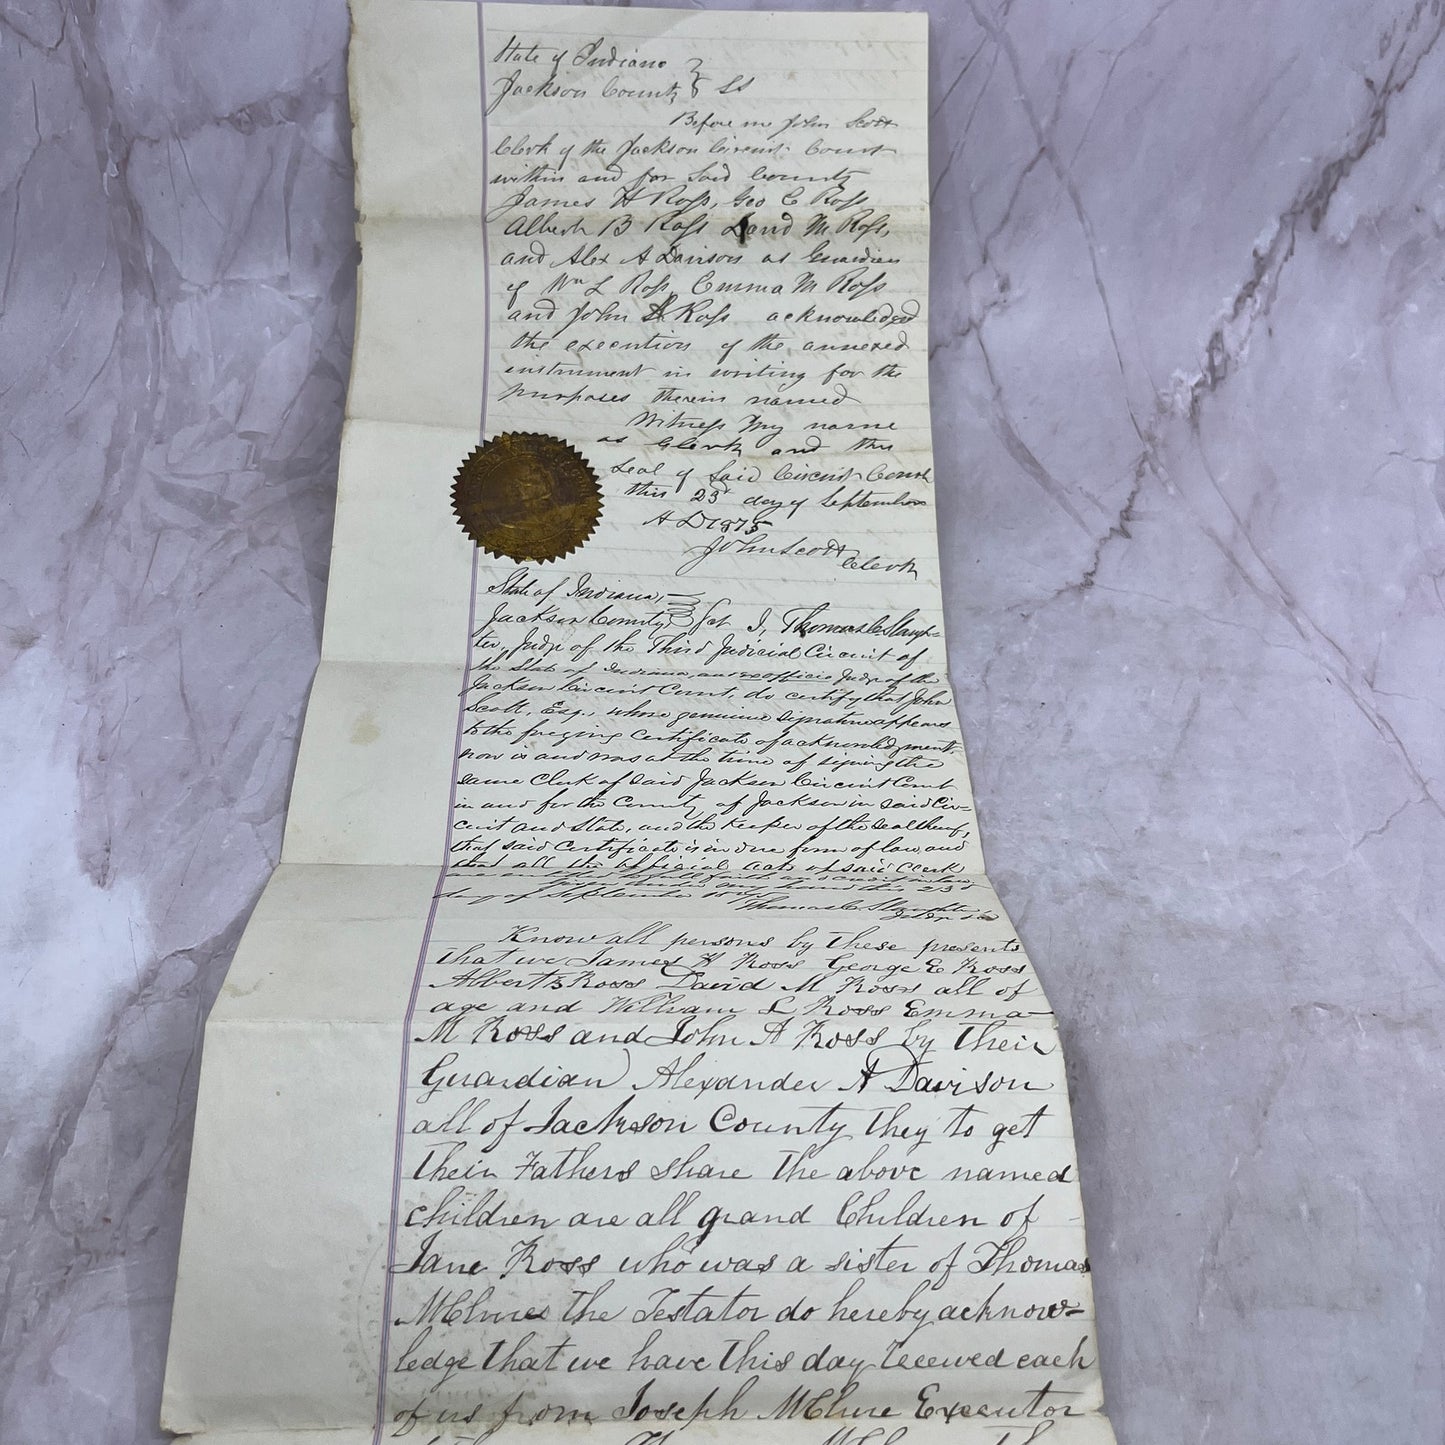 State of Indiana }
Jackson County } SS
Before me John Scott
Clerk of the Jackson Circuit Court
within and for Said County
James H Ross, Geo C Ross
Albert B Ross David M Ross,
and Alex A Davison as Guardian
of Wm L Ross, Emma M Ross
and John A Ross acknowledged
the execution of the annexed
instrument in writing for the
purposes therein named
Witness my name
as Clerk and the
Seal of Said Circuit Court
this 23d day of September
A D 1875
John Scott
Clerk
State of Indiana,
Jackson County } Sct I, Thomas C Slaugh-
ter, Judge of the Third Judicial Circuit of
the State of Indiana, and exofficio Judge of the
Jackson Circuit Court, do certify that John
Scott, Esq., whose genuine signature appears
to the foregoing Certificate of acknowledgment,
now is and was at the time of signing the
same Clerk of said Jackson Circuit Court
in and for the County of Jackson in said Cir-
cuit and State, and the keeper of the seal thereof,
that said Certificate is in due form of law, and
that all the official acts of said Clerk
are entitled to full faith and credit
Given under my hand this 23d
day of September 1875
Thomas C Slaughter
Judge
Know all persons by these presents
that we James H Ross George E Ross
Albert B Ross David M Ross all of
age and William L Ross Emma
M Ross and John A Ross by their
Guardian Alexander A Davison
all of Jackson County they to get
their Fathers share the above named
children are all grand Children of
Jane Ross who was a sister of Thomas
McClure the Testator do hereby acknow=
ledge that we have this day received each
of us from Joseph McClure Executor